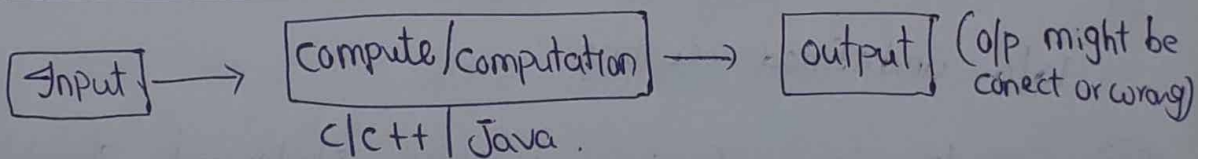 Input
compute/computation
output
(o/p might be
correct or wrong)
c/c++ | Java.